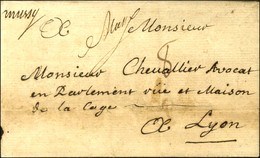 mussy
A Monsieur
Monsieur Chevallier Avocat
en Parlement rue et Maison
de la Cage
A Lyon